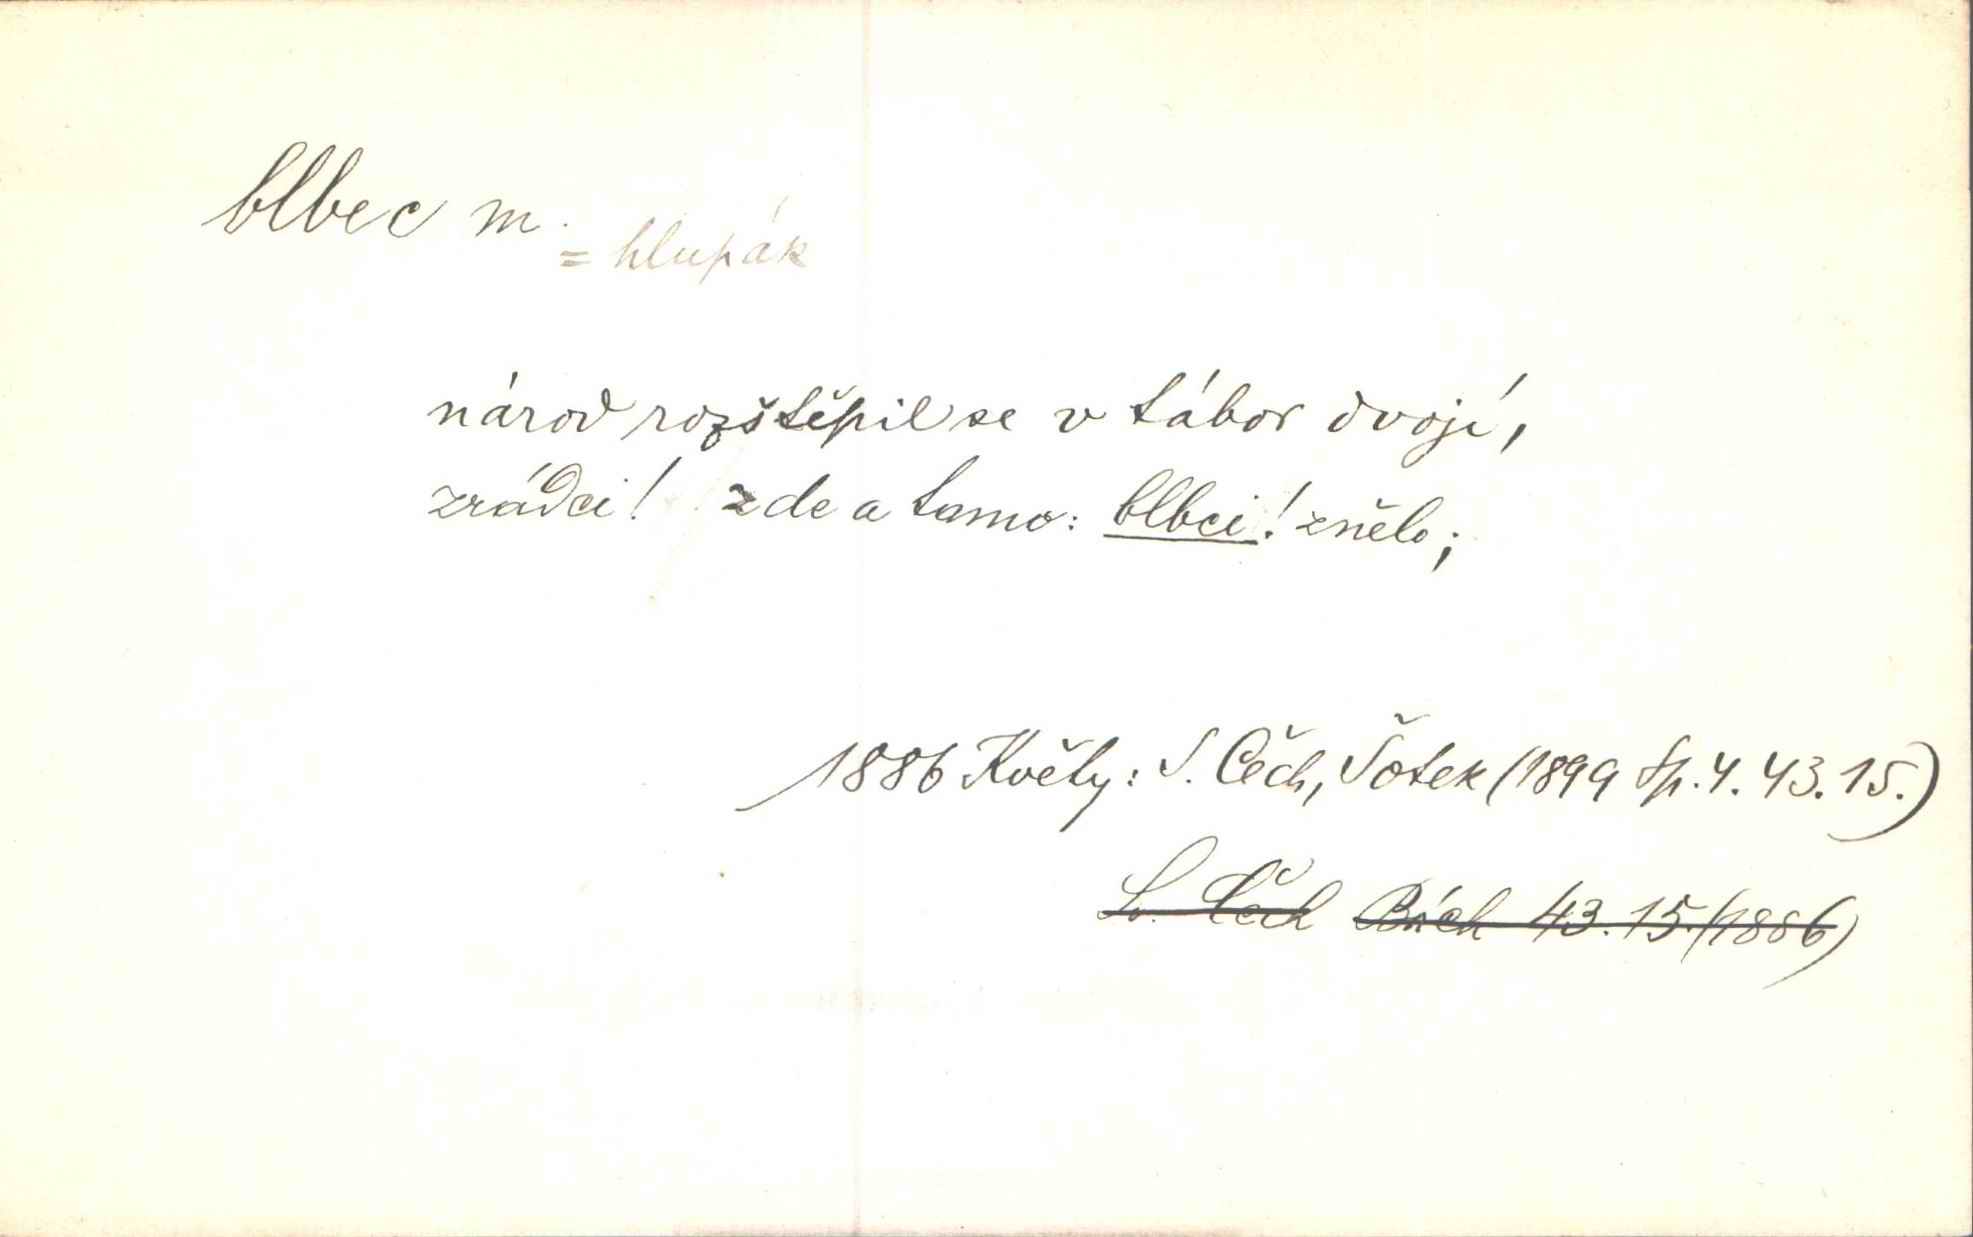 blbec m.
= hlupák
národ rozštěpil se v tábor dvojí,
zrádci! zde a tamo: blbci! znělo;
1886 Květy: S. Čech, Šotek (1899 Sp. 4. 43. 15.)
S. Čech 43. 15. (1886)